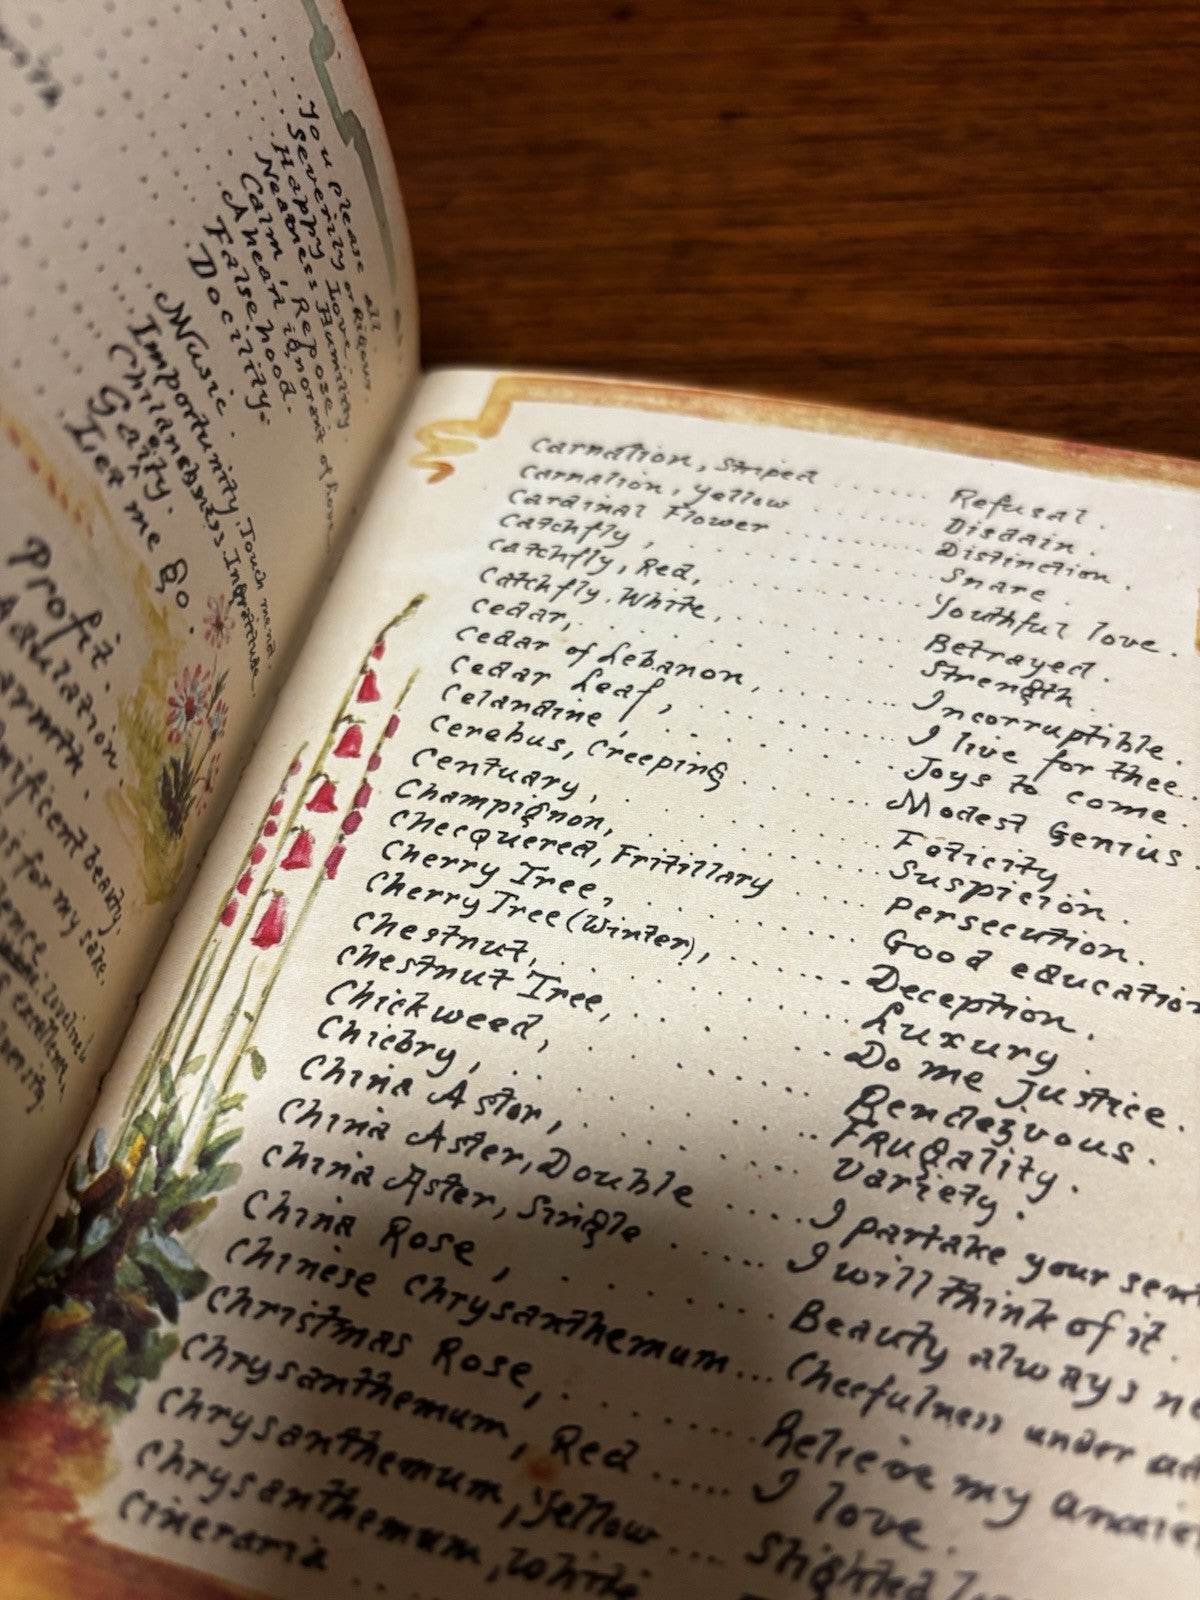 You please all
Severity or Rigour.
Happy Love.
Neatness Humility.
Calm, Repose.
A heart ignorant of love
Falsehood.
Docility.
Music.
Importunity. Touch me not.
Childishness. Ingratitude.
Gaity.
Let me go.
Profit.
Adulation.
armth.
nificent beauty.
is for my sake.
ence
excellence
Carnation, Striped ...... Refusal.
Carnation, yellow ........ Disdain.
Cardinal Flower ......... Distinction.
Catchfly, ......... Snare.
Catchfly, Red, ......... Youthful love.
Catchfly, White, ........ Betrayed.
Cedar, ......... Strength.
Cedar of Lebanon, ...... Incorruptible.
Cedar Leaf, ........ I live for thee.
Celandine, ........ Joys to come.
Cerabus, Creeping ...... Modest Genius.
Centuary, ......... Felicity.
Champignon, ........ Suspicion.
Checquered, Fritillary ..... Persecution.
Cherry Tree, ........ Good education
Cherry Tree (Winter), ...... Deception.
Chestnut, ......... Luxury.
Chestnut Tree, ........ Do me justice.
Chickweed, ........ Rendezvous.
Chicory, ......... Frugality.
China Aster, ........ Variety.
China Aster, Double ..... I partake your sent
China Aster, Single ...... I will think of it.
China Rose, ........ Beauty always ne
Chinese Chrysanthemum... Cheerfulness under ad
Christmas Rose, ....... Relieve my anxiet
Chrysanthemum, Red ..... I love.
Chrysanthemum, Yellow ... Slighted
Chrysanthemum, White
Cineraria ...